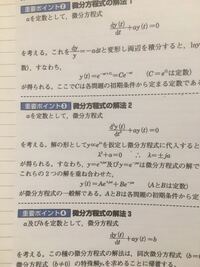 重要ポイント❶ 微分方程式の解法 1
aを定数として，微分方程式
dy(t)/dt + ay(t)=0
を考える。これを dy/y = −adt と変形し両辺を積分すると，
数)，すなわち，
y(t)=e^{-at+C}=Ce^{-at} (C=e^{C}は定数)
が得られる。ここでCは各問題の初期条件から定まる定数である
重要ポイント❷ 微分方程式の解法 2
aを定数として，微分方程式
d²y(t)/dt² + ay(t)=0
を考える。解の形としてy=e^{λt}を仮定し微分方程式に代入すると
λ²+a=0 ∴ λ=±
が得られる。すなわち，
これらの2つの解を重ね合わせた，
y(t)=Ae +Be (AとBは定数)
が微分方程式の一般解である。AとBは各問題の初期条件から定
重要ポイント❸ 微分方程式の解法 3
a及びbを定数として，微分方程式
dy(t)/dt + ay(t)=b
を考える。この種の微分方程式の解法は，同次微分方程